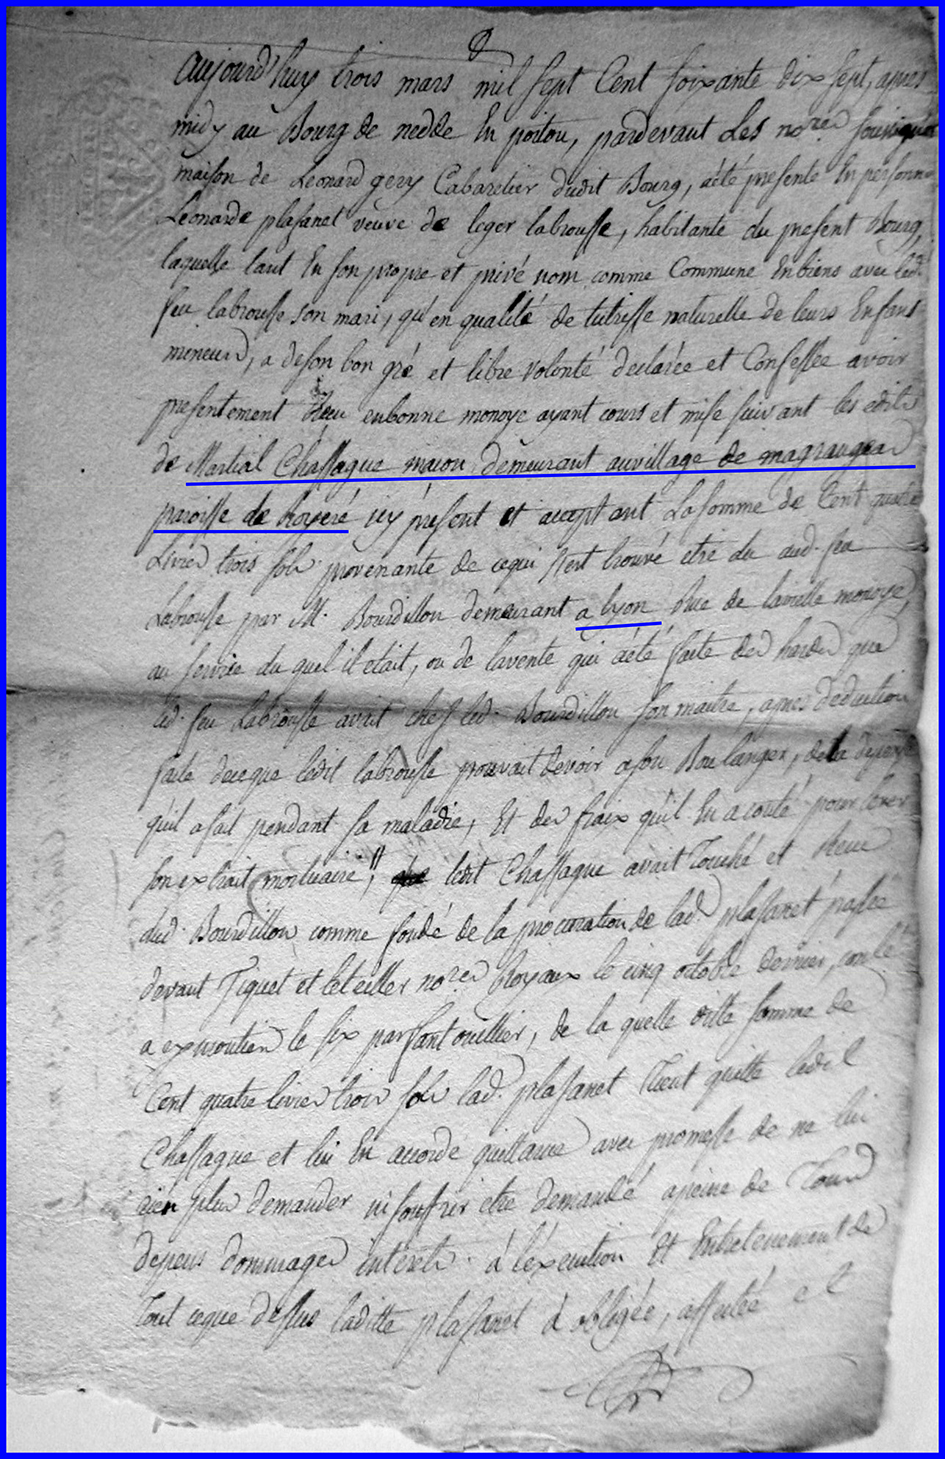 aujourd'huy trois mars mil sept Cent soixante dix sept, apres
midy au Bourg de nedde En poitou, pardevant Les no.res soussignés
maison de Leonard gery Cabaretier dudit Bourg, a été presente En personne
Leonarde plasanet veuve de leger labrousse, habitante du present Bourg,
laquelle tant En son propre et privé nom comme Commune En biens avec led.
feu labrousse son mari, qu'en qualité de tutrisse naturelle de leurs Enfants
mineurs, a de son bon gré et libre volonté declarée et Confessée avoir
presentement Reçu en bonne monoye ayant cours et mise suivant les edits
de Martial Chassagne macon demeurant au village de magrangeas
paroisse de Royere icy present et acceptant La somme de Cent quatre
Livres trois sols provenante de ce qui s'est trouvé etre du aud. feu
Labrousse par M. Bourdillon demeurant a lyon Rue de la vielle monoye
au service du quel il etait, ou de la vente qui a été faite des hardes que
led. feu Labrousse avait chez led. Bourdillon son maitre, apres deduction
faite de ce que ledit labrousse pouvait devoir a son Boulanger, de la depense
qu'il a fait pendant sa maladie, Et des fraix qu'il En a couté pour lever
son extrait mortuaire", ledit Chassagne avait Touché et Reçu
dud. Bourdillon comme fondé de la procuration de lad. plasanet passée
devant Tiquet et no.res Royaux le cinq octobre dernier,
a le six par , de la quelle ditte somme de
Cent quatre livres trois sols lad. plasanet Tient quitte ledit
Chassagne et lui En accorde quittance avec promesse de ne lui
rien plus demander ni souffrir etre demandé a peine de Tous
depens dommages interets. à l'execution Et Entretenement de
Tout ce que dessus laditte plasanet à obligée, affectée et